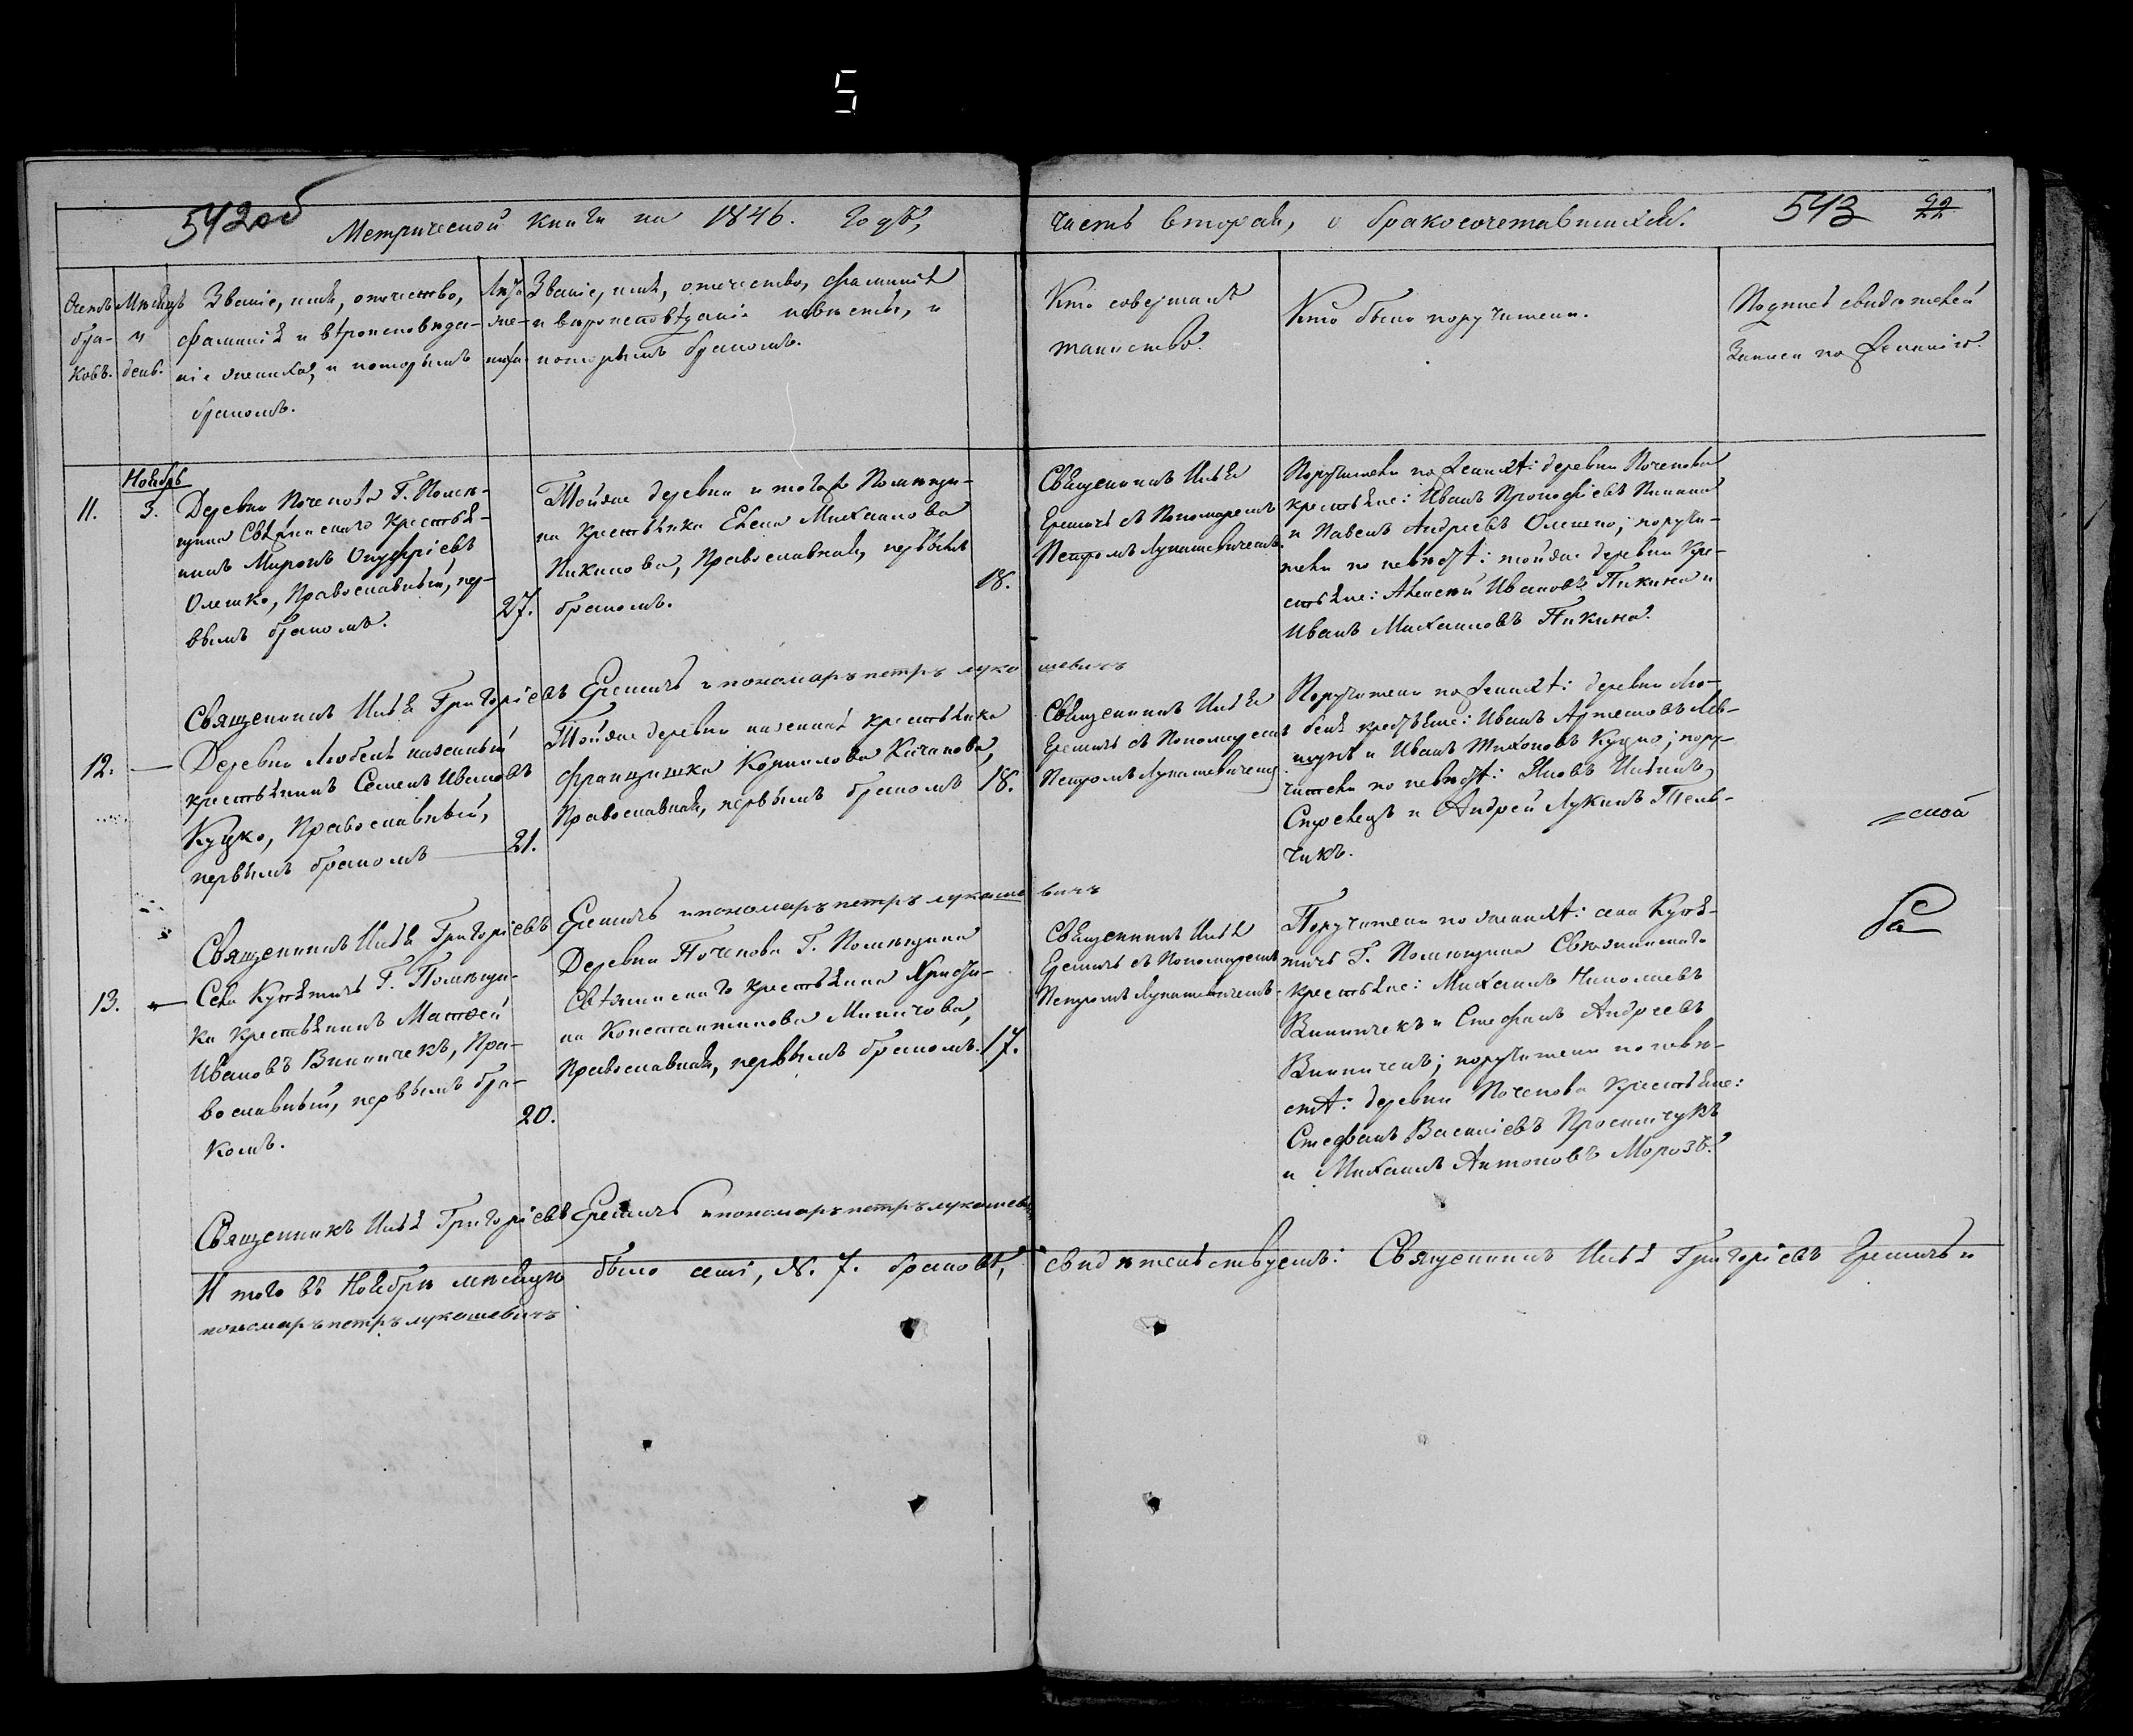 5
542об
Метрической книги на 1846. годъ,
часть вторая, о бракосочетавшихся.
543
22
Счетъ
бра-
ковъ.
Мѣсяцъ
и
день.
Званіе, имя, отечество,
фамилія и вѣроисповѣда-
ніе жениха, и которымъ
бракомъ.
Лѣта
же-
ниха
Званіе, имя, отечество, фамилія
и вѣроисповѣданіе невѣсты, и
которымъ бракомъ.
Кто совершалъ
таинство.
Кто были поручители.
Подпись свидѣтелей
записи по желанію.
Ноябрь
11.
3.
Деревни Почепова Г. Помѣ-
щика крестья-
нинъ Миронъ Онуфріевъ
Олешко, Православный, пер-
вымъ бракомъ.
27.
Тойже деревни и тогожъ Помѣщи-
ка крестьянка Елена Михайлова
Пикинова, Православная, первымъ
бракомъ.
18.
Священникъ Илья
Еремичъ съ Пономаремъ
Петромъ Лукашевичемъ.
Поручители по женихѣ: деревни Почепова
крестьяне: Иванъ Прокофіевъ
и Павелъ Андреевъ Олешко; поручи-
тели по невѣстѣ: тойже деревни кре-
стьяне: Алексѣй Ивановъ Пикина и
Иванъ Михайловъ Пикина.
Священникъ Илья Григоріевъ Еремичъ и пономаръ петръ лукашевичъ
12.
—
Деревни Любеля казенный
крестьянинъ Семенъ Ивановъ
Куцко, Православный,
первымъ бракомъ
21.
Тойже деревни казенная крестьянка
Францишка Корнилова Качанова,
Православная, первымъ бракомъ
18.
Священникъ Илья
Еремичъ съ Пономаремъ
Петромъ Лукашевичемъ
Поручители по женихѣ: деревни Лю-
беля крестьяне: Иванъ Артемовъ Лев-
и Иванъ Тихоновъ Куцко; пору-
чители по невѣстѣ: Яковъ Ильинъ
и Андрей Лукинъ Тель-
чикъ.
Священникъ Илья Григоріевъ Еремичъ и пономаръ петръ лукашевичъ
13.
—
Села Г. Помѣщи-
ка крестьянинъ Матѳей
Ивановъ Винничекъ, Пра-
вославный, первымъ бра-
комъ.
20.
Деревни Почепова Г. Помѣщика
крестьянина Христи-
на Константинова Миничова,
Православная, первымъ бракомъ.
17.
Священникъ Илья
Еремичъ съ Пономаремъ
Петромъ Лукашевичемъ.
Поручители по женихѣ: села
Г. Помѣщика
крестьяне: Михаилъ Николаевъ
Винничекъ и Стефанъ Андреевъ
Винничекъ; поручители по невѣ-
стѣ: деревни Почепова крестьяне:
Стефанъ Василіевъ
и Михаилъ Антоновъ Морозъ.
Священникъ Илья Григоріевъ Еремичъ и пономаръ петръ лукашевичъ
И того въ Ноябрѣ мѣсяцѣ было семь, N. 7. браковъ, свидѣтельствуемъ: Священникъ Илья Григоріевъ Еремичъ и
пономаръ петръ лукашевичъ